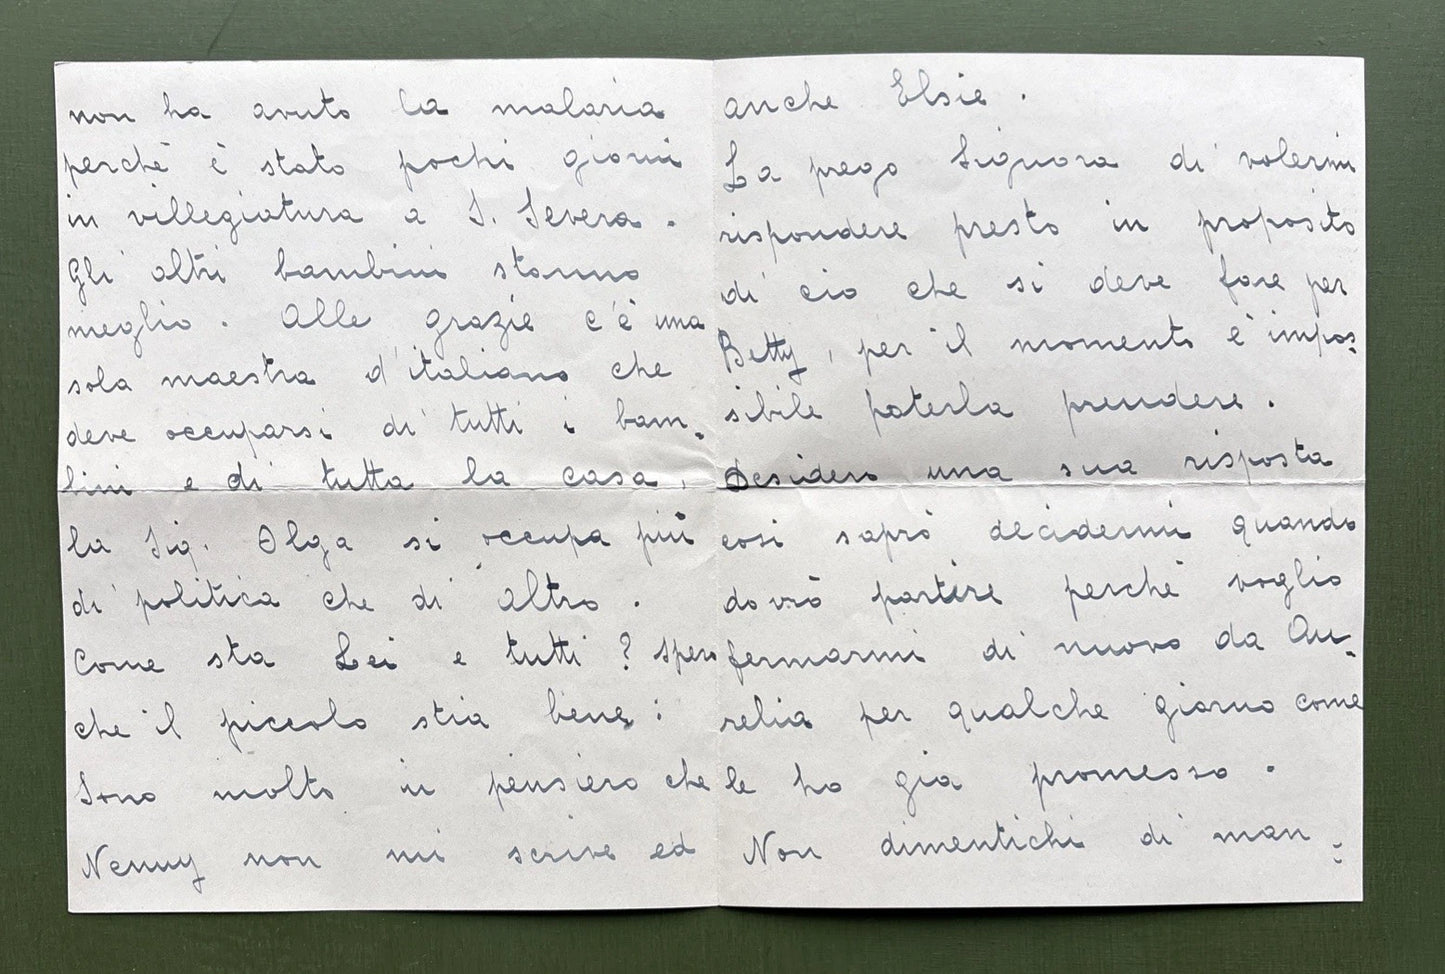 non ha avuto la malaria
perchè è stato pochi giorni
in villegiatura a S. Severa.
Gli altri bambini stanno
meglio. Alle grazie c'è una
sola maestra d'italiano che
deve occuparsi di tutti i bam-
bini e di tutta la casa,
la Sig. Olga si occupa più
di politica che di altro.
Come sta Lei e tutti? Spero
che il piccolo stia bene.
Sono molto in pensiero che
Nenny non mi scrive ed
anche Elsie.
La prego Signora di volermi
rispondere presto in proposito
di ciò che si deve fare per
Betty, per il momento è impos-
sibile poterla prendere.
Desidero una sua risposta
così saprò decidermi quando
dovrò partire perchè voglio
fermarmi di nuovo da Au-
relia per qualche giorno come
le ho già promesso.
Non dimentichi di man-